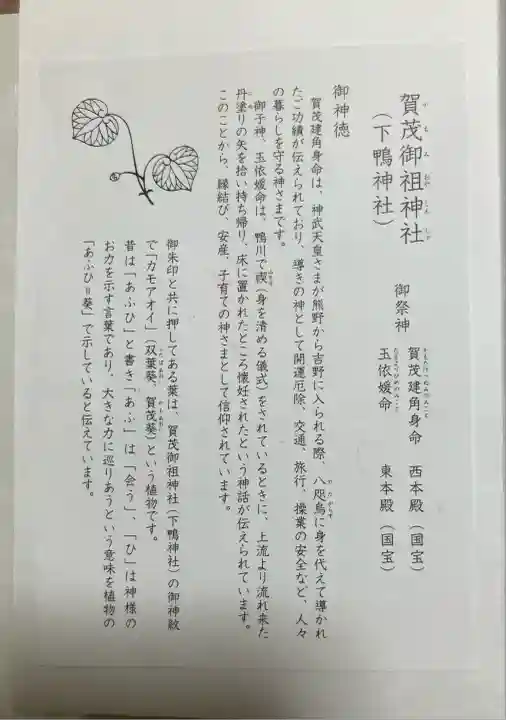 賀茂御祖神社
（下鴨神社）
御祭神
賀茂建角身命　西本殿（国宝）
玉依媛命　東本殿（国宝）
御神徳
賀茂建角身命は、神武天皇さまが熊野から吉野に入られる際、八咫烏に身を代えて導かれ
たご功績が伝えられており、導きの神として開運厄除、交通、旅行、操業の安全など、人々
の暮らしを守る神さまです。
御子神、玉依媛命は、鴨川で禊（身を清める儀式）をされているときに、上流より流れ来た
丹塗りの矢を拾い持ち帰り、床に置かれたところ懐妊されたという神話が伝えられています。
このことから、縁結び、安産、子育ての神さまとして信仰されています。
御朱印と共に押してある葉は、賀茂御祖神社（下鴨神社）の御神紋
で「カモアオイ」（双葉葵、賀茂葵）という植物です。
昔は「あふひ」と書き「あふ」は「会う」、「ひ」は神様の
お力を示す言葉であり、大きな力に巡りあうという意味を植物の
「あふひ＝葵」で示していると伝えています。